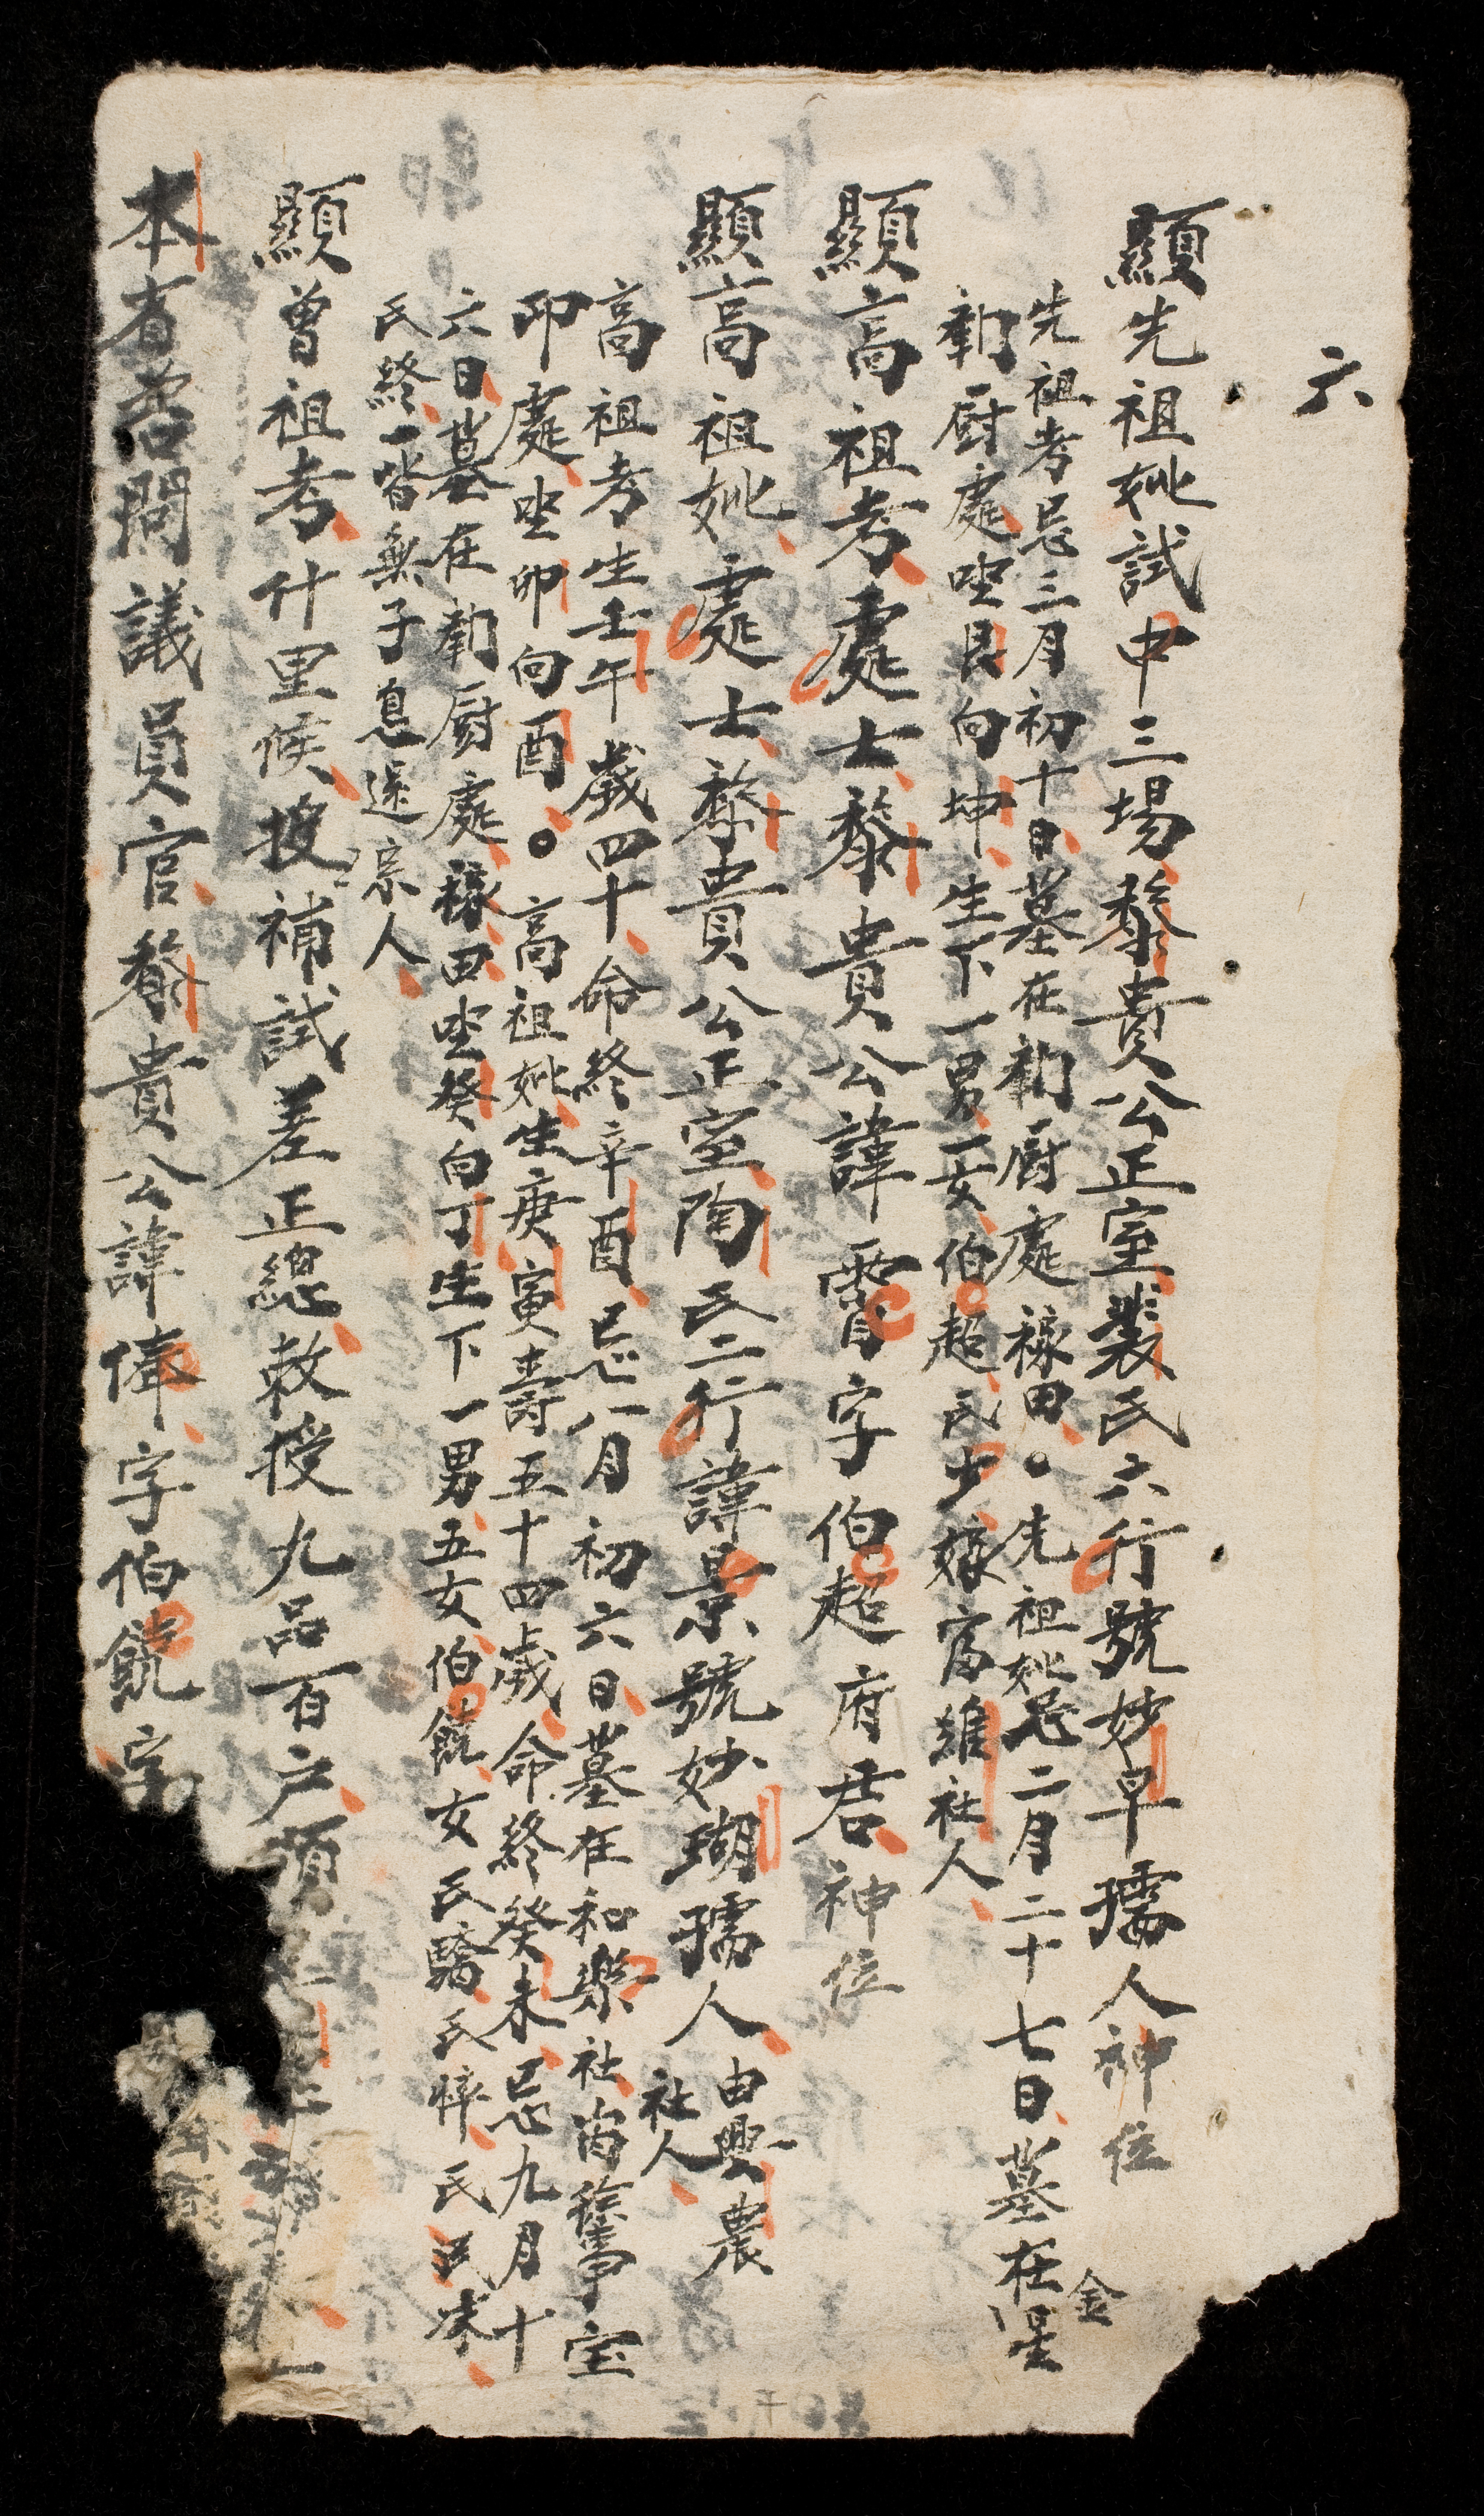 六
顯先祖妣試中三場黎貴公正室裴氏六行號妙早孺人神位
先祖考忌三月初十日墓在勸厨處祿田。先祖妣忌二月二十七日墓在金星
勸厨處坐艮向坤生下一男一女伯超氏少嫁富維社人
顯高祖考處士黎貴公諱霤字伯超府君神位
顯高祖妣處士黎貴公正室陶氏二行諱景號妙瑚孺人由興農社人
高祖考生壬午歲四十命終辛酉忌八月初六日墓在和樂社
卯處坐卯向酉。高祖妣生庚寅壽五十四歲命終癸未忌九月十
六日墓在勸厨處祿田坐癸向丁生下一男五女伯饒女氏驕氏悴氏
氏終一皆無子息遠宗人
顯曾祖考什里候授補試差正總敕授九品百户
本省咨問議員官黎貴公諱俸字伯饒字